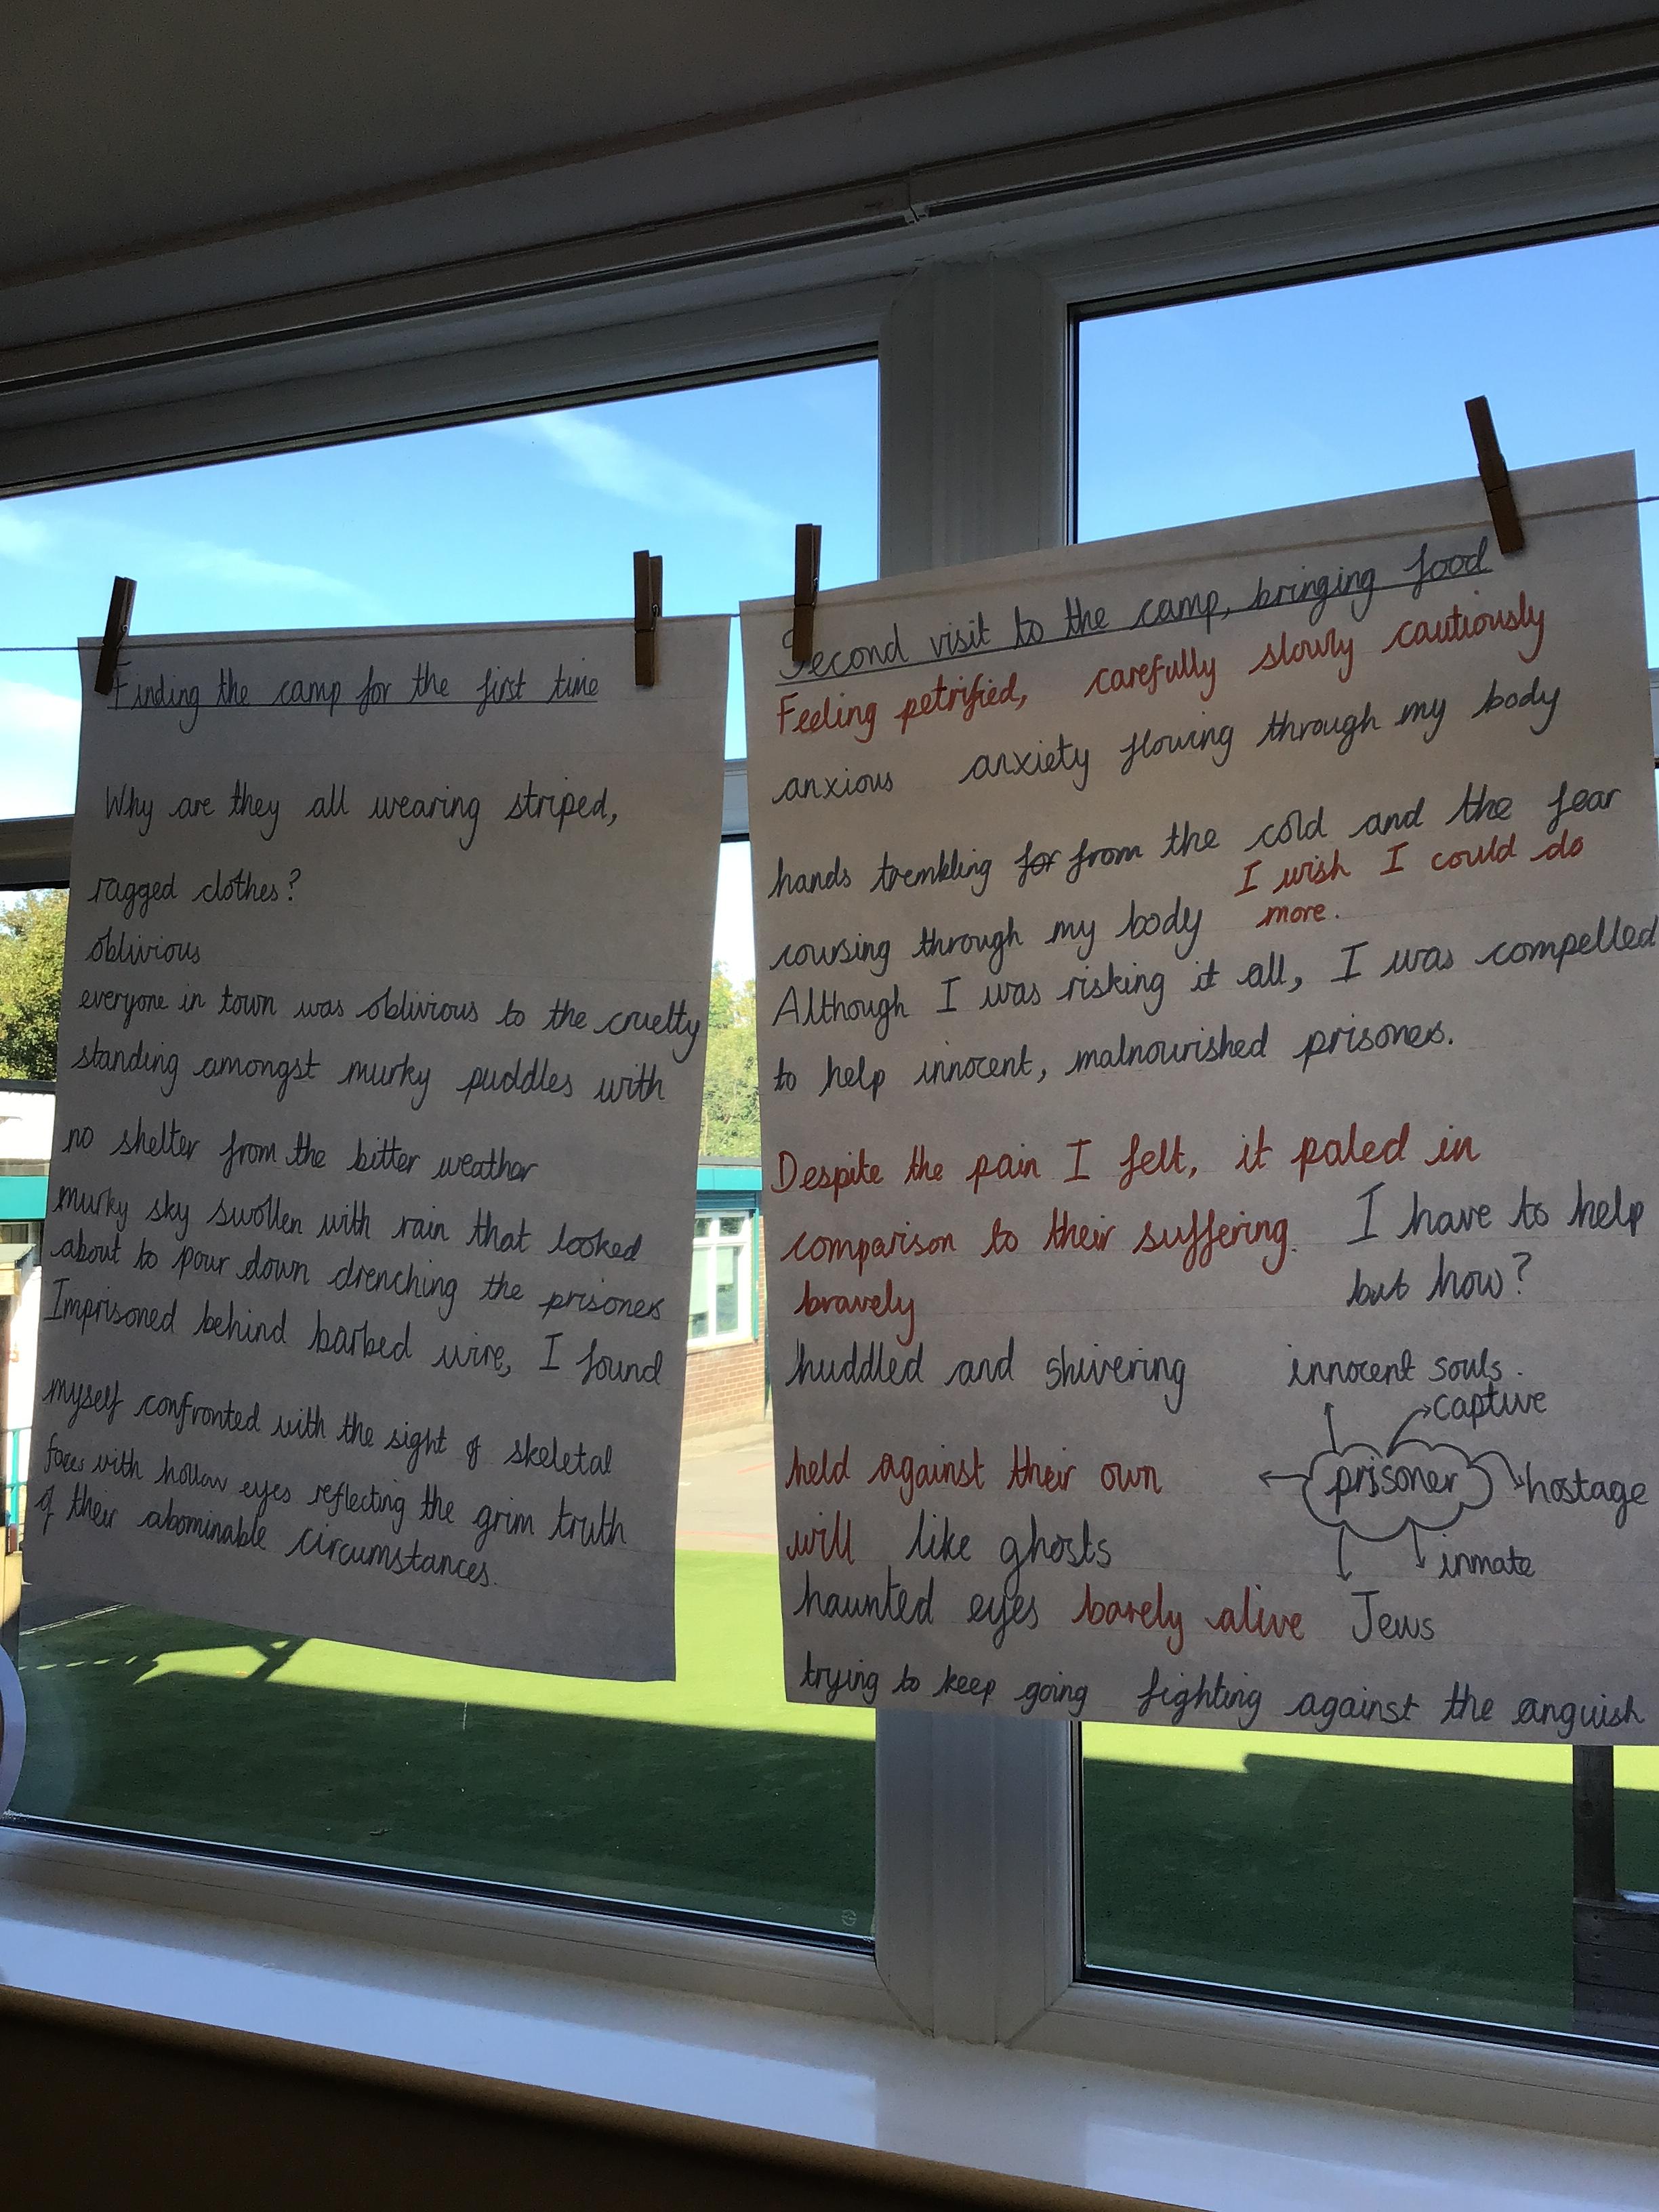 Finding the camp for the first time
Why are they all wearing striped,
ragged clothes?
oblivious
everyone in town was oblivious to the cruelty
standing amongst murky puddles with
no shelter from the bitter weather
murky sky swollen with rain that looked
about to pour down drenching the prisoners
Imprisoned behind barbed wire, I found
myself confronted with the sight of skeletal
faces with hollow eyes reflecting the grim truth
of their abominable circumstances.
Second visit to the camp, bringing food
Feeling petrified, carefully slowly cautiously
anxious anxiety flowing through my body
hands trembling for from the cold and the fear
coursing through my body I wish I could do
more.
Although I was risking it all, I was compelled
to help innocent, malnourished prisoners.
Despite the pain I felt, it paled in
comparison to their suffering. I have to help
bravely but how?
huddled and shivering innocent souls.
captive
held against their own prisoner hostage
will like ghosts inmate
haunted eyes barely alive Jews
trying to keep going fighting against the anguish